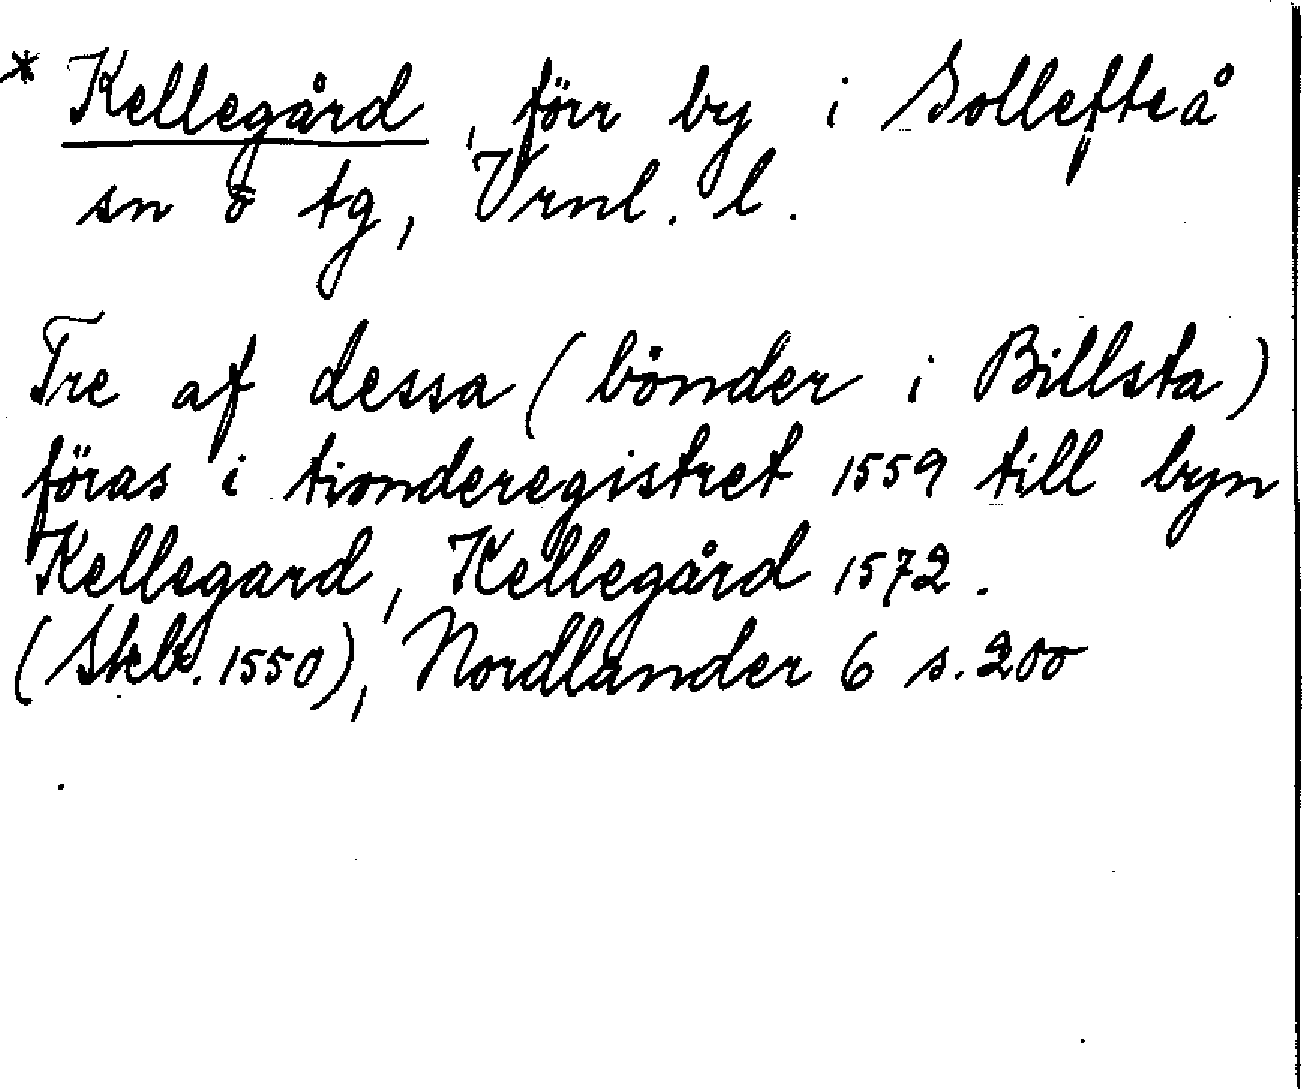 * Kellegård, förr by i Sollefteå
sn o tg, Vrnl. l.
Tre af dessa (bönder i Billsta)
föras i tionderegistret 1559 till byn
Kellegard, Kellegård 1572.
(Skb. 1550), Nordlander 6 s. 200